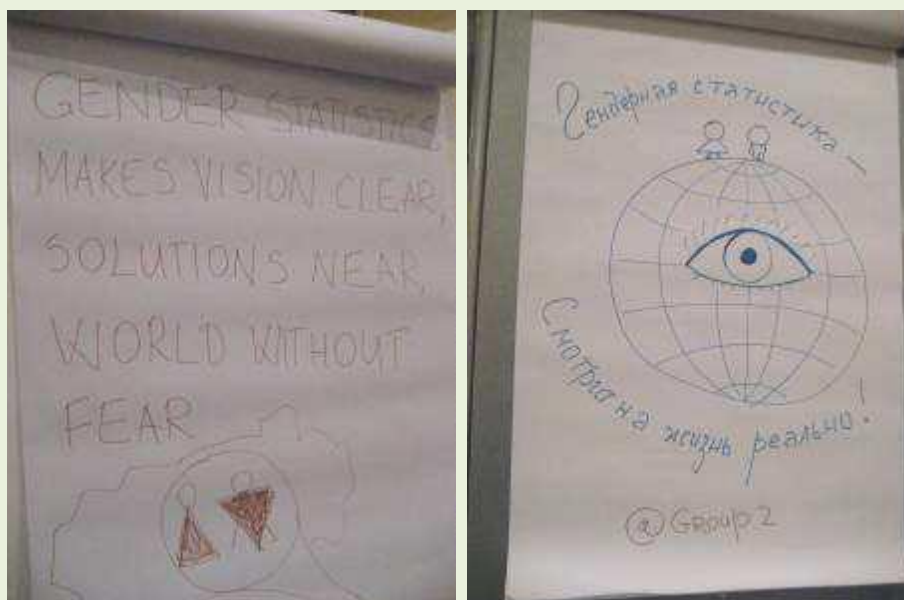 GENDER STATISTICS
MAKES VISION CLEAR,
SOLUTIONS NEAR,
WORLD WITHOUT
FEAR
Гендерная статистика —
Смотри на жизнь реально!
@Group 2